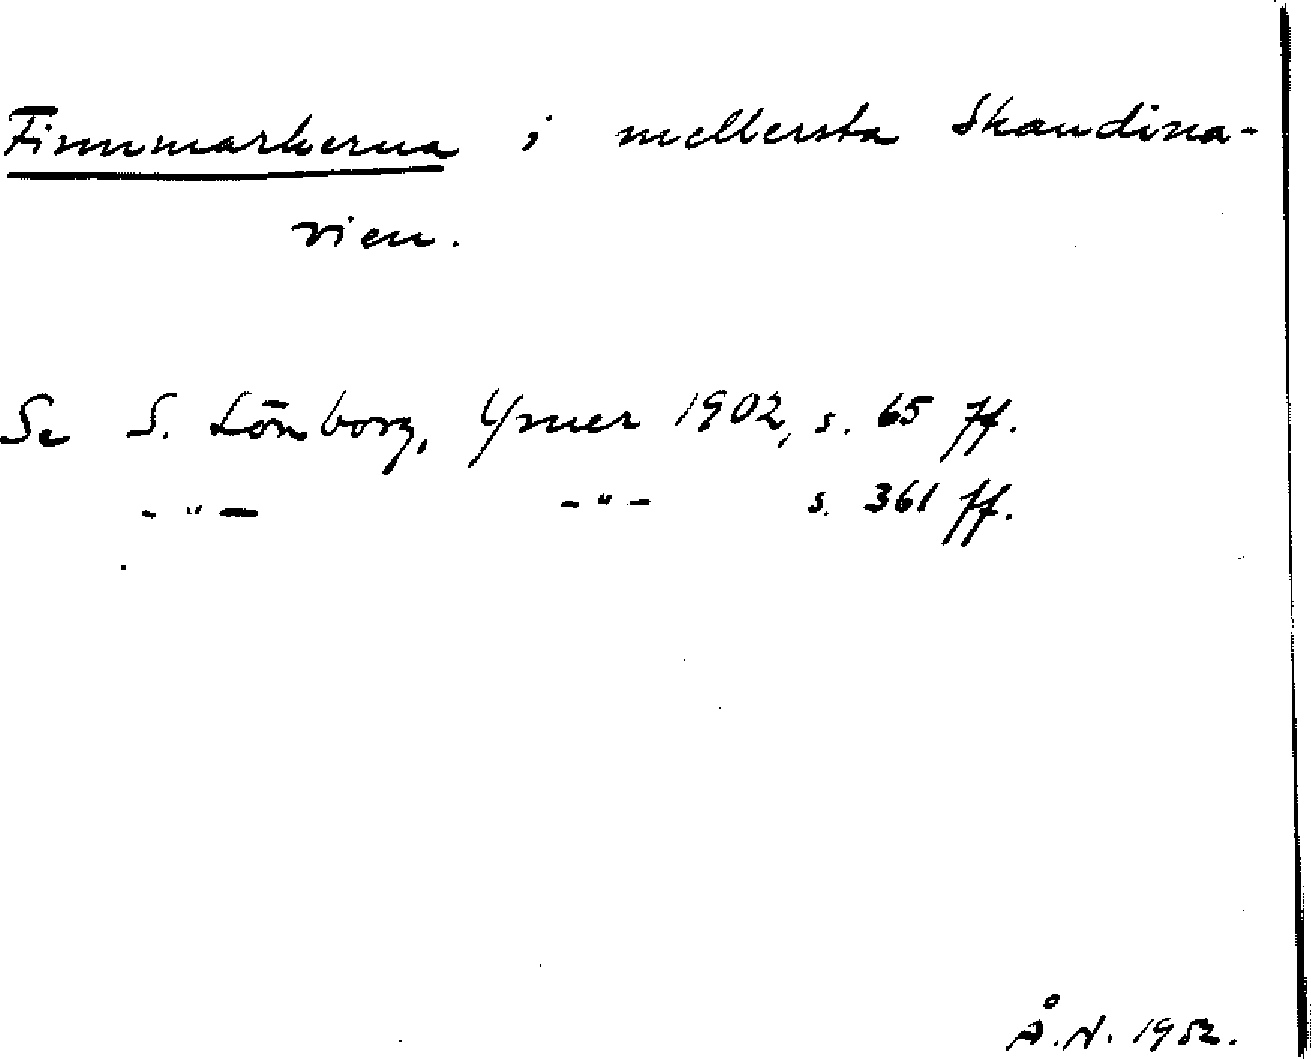 Finnmarkerna i mellersta Skandina-
vien.
Se S. Lönborg, Ymer 1902, s. 65 ff.
- " - - " - s. 361 ff.
Å.N. 1952.